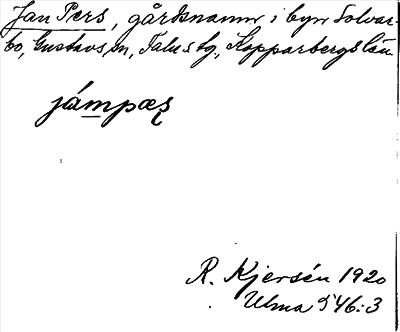 Jan Pers, gårdsnamn i byn Solvar-
bo, Gustavs sn, Falu tg., Kopparbergs län
jámpæʂ
R. Kjersén 1920
Ulma 546:3